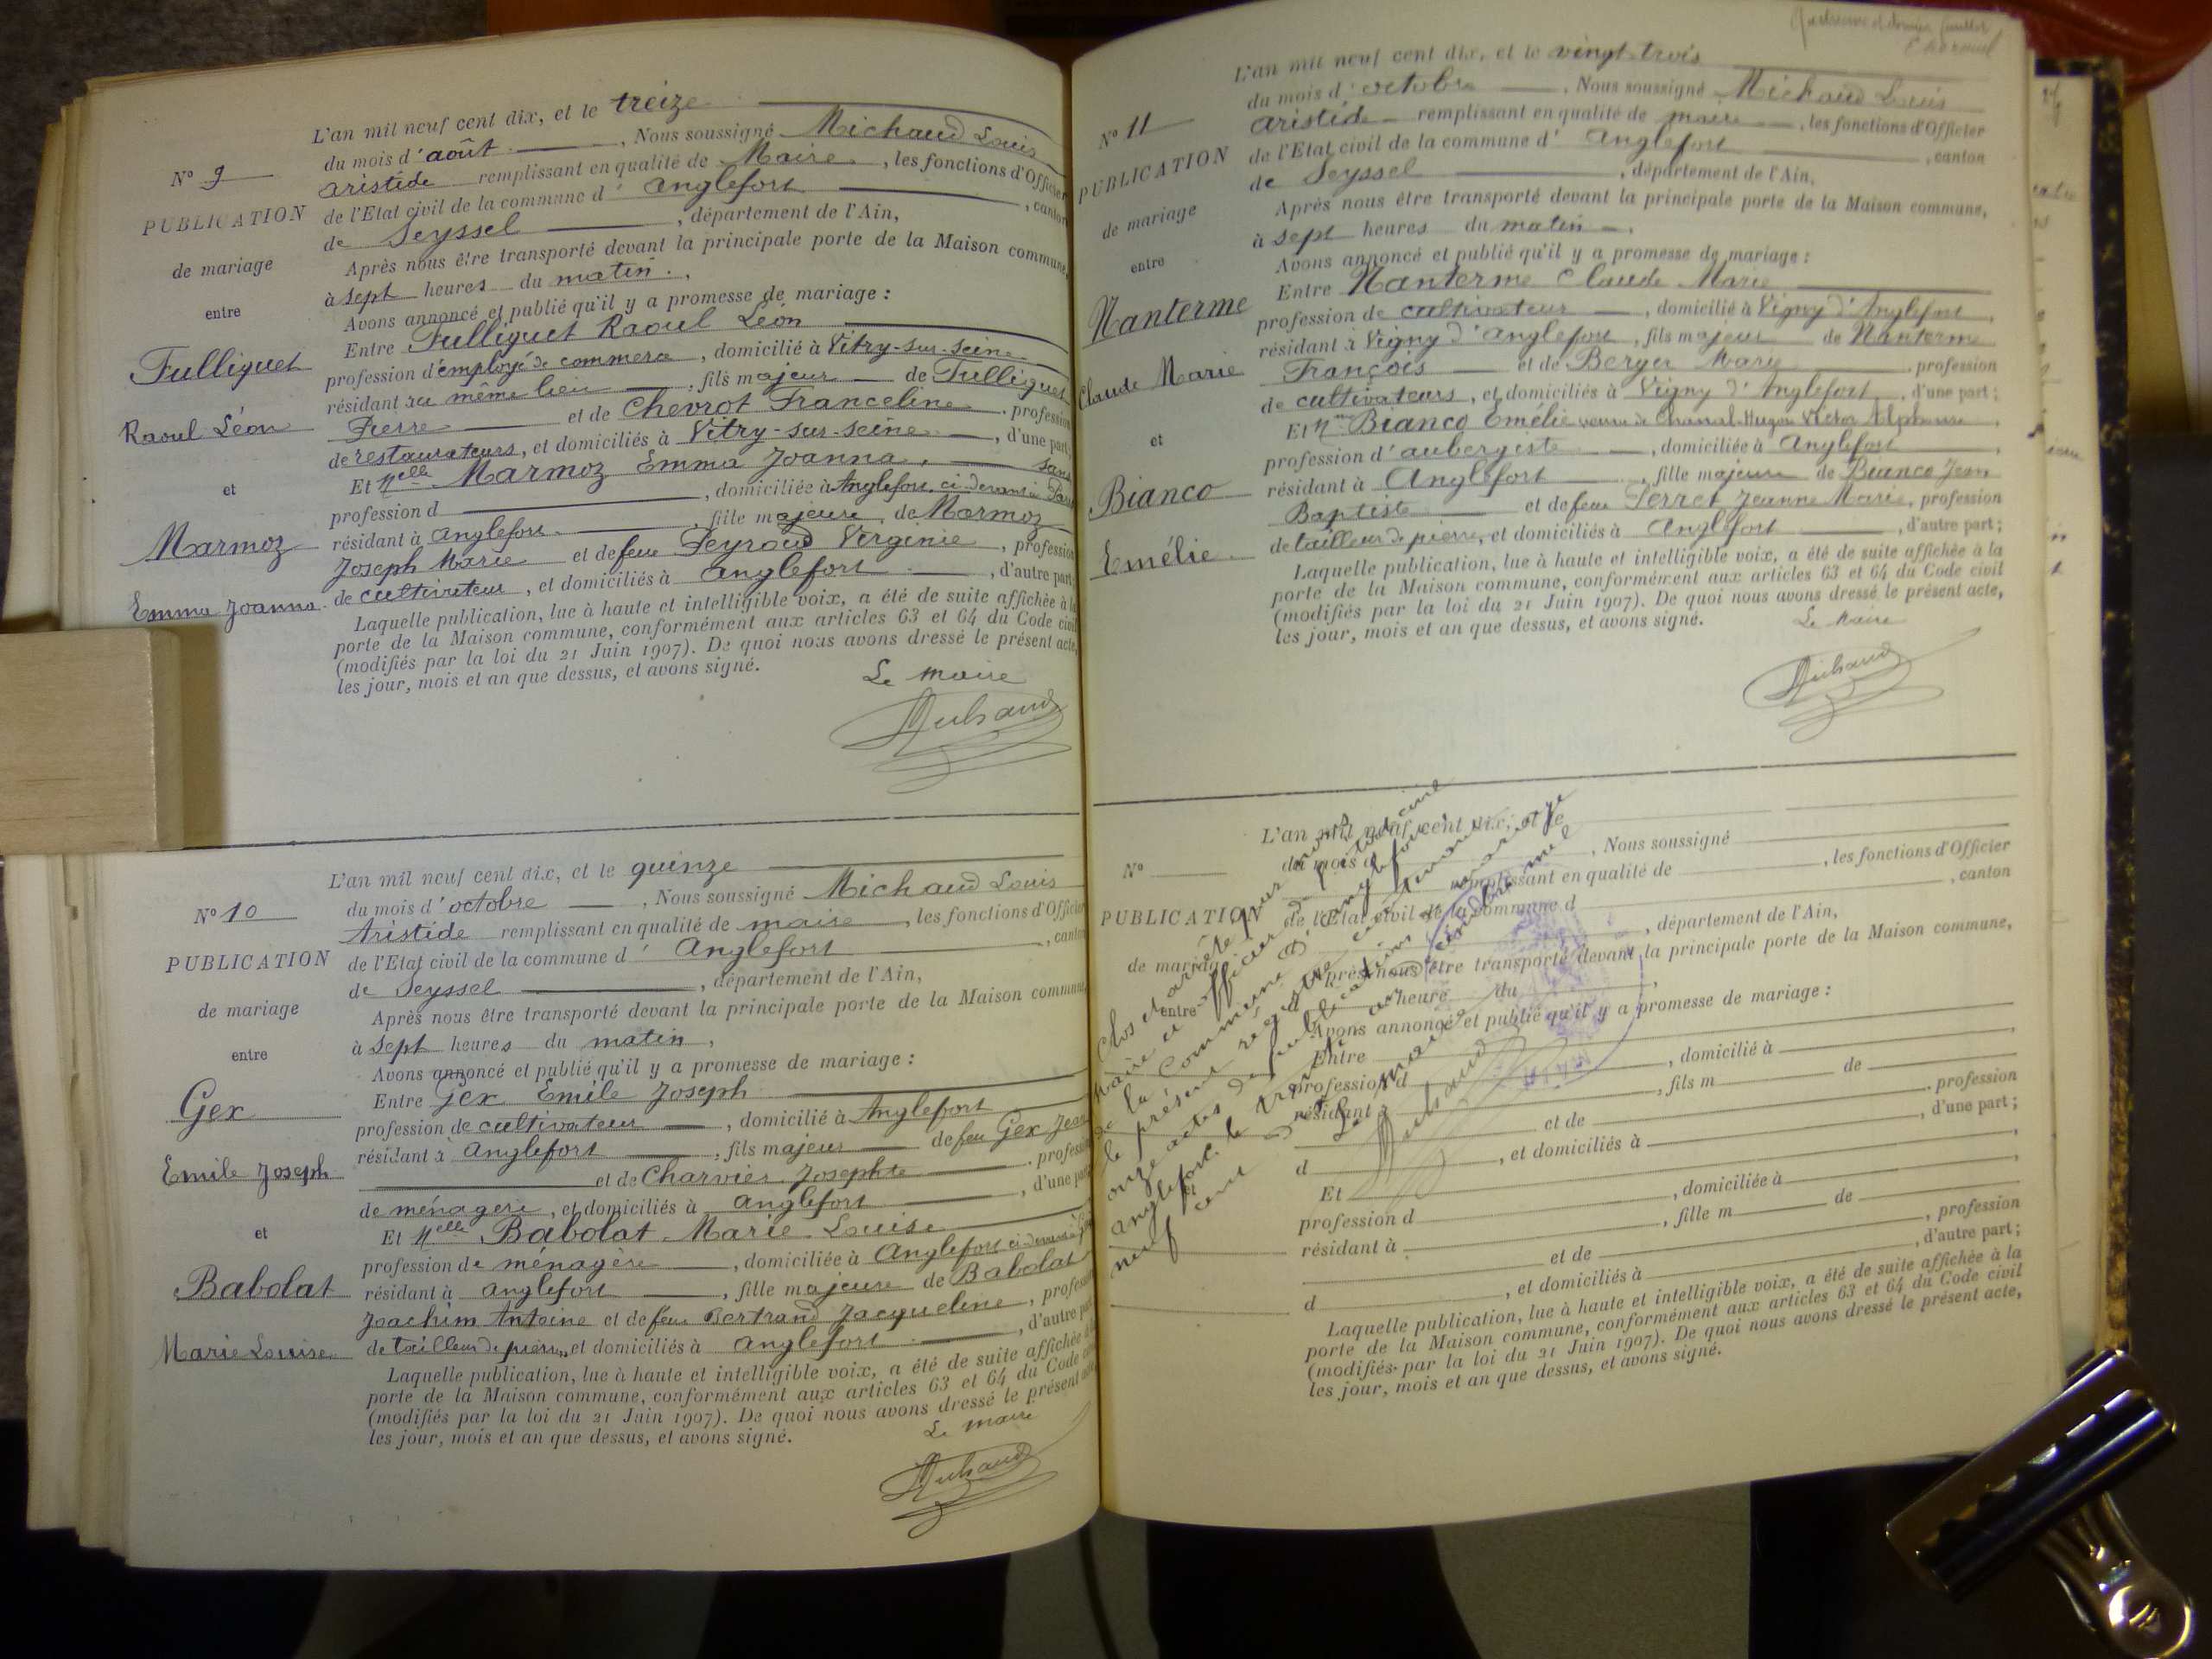 L'an mil neuf cent dix, et le treize
du mois d'août, Nous soussigné Michaud Louis
Aristide remplissant en qualité de Maire, les fonctions d'Officier
de l'Etat civil de la commune d'Anglefort, canton
de Seyssel, département de l'Ain,
Après nous être transporté devant la principale porte de la Maison commune,
à sept heures du matin,
Avons annoncé et publié qu'il y a promesse de mariage :
Entre Fulliquet Raoul Léon
profession d'employé de commerce, domicilié à Vitry-sur-Seine
résidant au même lieu, fils majeur de Fulliquet
Pierre et de Chevrot Franceline, profession
de restaurateurs, et domiciliés à Vitry-sur-Seine, d'une part ;
Et Melle Marmoz Emma Joanna, sans
profession d, domiciliée à Anglefort, ci-devant à Paris
résidant à Anglefort, fille majeure, de Marmoz
Joseph Marie et de feue Peyroud Virginie, profession
de cultivateur, et domiciliés à Anglefort, d'autre part ;
Laquelle publication, lue à haute et intelligible voix, a été de suite affichée à la
porte de la Maison commune, conformément aux articles 63 et 64 du Code civil
(modifiés par la loi du 21 Juin 1907). De quoi nous avons dressé le présent acte,
les jour, mois et an que dessus, et avons signé.
Le Maire
Michaud
N° 9
PUBLICATION
de mariage
entre
Fulliquet
Raoul Léon
et
Marmoz
Emma Joanna
L'an mil neuf cent dix, et le quinze
du mois d'octobre, Nous soussigné Michaud Louis
Aristide remplissant en qualité de maire, les fonctions d'Officier
de l'Etat civil de la commune d'Anglefort, canton
de Seyssel, département de l'Ain,
Après nous être transporté devant la principale porte de la Maison commune,
à sept heures du matin,
Avons annoncé et publié qu'il y a promesse de mariage :
Entre Gex Emile Joseph
profession de cultivateur, domicilié à Anglefort
résidant à Anglefort, fils majeur de feu Gex Jean
et de Charvier Josephte, profession
de ménagère, et domiciliés à Anglefort, d'une part
Et Melle Babolat Marie Louise
profession de ménagère, domiciliée à Anglefort ci-devant à
résidant à Anglefort, fille majeure de Babolat
Joachim Antoine et de feue Bertrand Jacqueline, profession
de tailleur de pierres, et domiciliés à Anglefort, d'autre part
Laquelle publication, lue à haute et intelligible voix, a été de suite affichée à la
porte de la Maison commune, conformément aux articles 63 et 64 du Code civil
(modifiés par la loi du 21 Juin 1907). De quoi nous avons dressé le présent acte,
les jour, mois et an que dessus, et avons signé.
Le maire
Michaud
N° 10
PUBLICATION
de mariage
entre
Gex
Emile Joseph
et
Babolat
Marie Louise
L'an mil neuf cent dix, et le vingt-trois
du mois d'octobre. Nous soussigné Michaud Louis
Aristide remplissant en qualité de maire, les fonctions d'Officier
de l'Etat civil de la commune d'Anglefort, canton
de Seyssel, département de l'Ain,
Après nous être transporté devant la principale porte de la Maison commune,
à sept heures du matin.
Avons annoncé et publié qu'il y a promesse de mariage :
Entre Nanterme Claude Marie
profession de cultivateur, domicilié à Vigny d'Anglefort,
résidant à Vigny d'Anglefort, fils majeur de Nanterme
François et de Berger Marie, profession
de cultivateurs, et domiciliés à Vigny d'Anglefort, d'une part ;
Et Mme Bianco Emélie veuve de Chanal Hugon Victor Alphonse,
profession d'aubergiste, domiciliée à Anglefort,
résidant à Anglefort, fille majeure de Bianco Jean
Baptiste et de feue Perret Jeanne Marie, profession
de tailleur de pierre, et domiciliés à Anglefort, d'autre part ;
Laquelle publication, lue à haute et intelligible voix, a été de suite affichée à la
porte de la Maison commune, conformément aux articles 63 et 64 du Code civil
(modifiés par la loi du 21 Juin 1907). De quoi nous avons dressé le présent acte,
les jour, mois et an que dessus, et avons signé.
Le Maire
Michaud
N° 11
PUBLICATION
de mariage
entre
Nanterme
Claude Marie
et
Bianco
Emélie
L'an mil neuf cent dix, et le
du mois d, Nous soussigné
remplissant en qualité de, les fonctions d'Officier
de l'Etat civil de la commune d, canton
, département de l'Ain,
Après nous être transporté devant la principale porte de la Maison commune,
à heure du,
Avons annoncé et publié qu'il y a promesse de mariage :
Entre
profession d, domicilié à
résidant à, fils m de
et de, profession
d, et domiciliés à, d'une part ;
Et
profession d, domiciliée à
résidant à, fille m de
et de, profession
d, et domiciliés à, d'autre part ;
Laquelle publication, lue à haute et intelligible voix, a été de suite affichée à la
porte de la Maison commune, conformément aux articles 63 et 64 du Code civil
(modifiés par la loi du 21 Juin 1907). De quoi nous avons dressé le présent acte,
les jour, mois et an que dessus, et avons signé.
N°
PUBLICATION
de mariage
entre
Clos et arrêté par nous
Maire et officier de l'état civil
de la commune d'Anglefort
le présent registre contenant
onze actes de publications de mariage
Anglefort le trente un décembre mil
neuf cent dix
Le Maire
Michaud